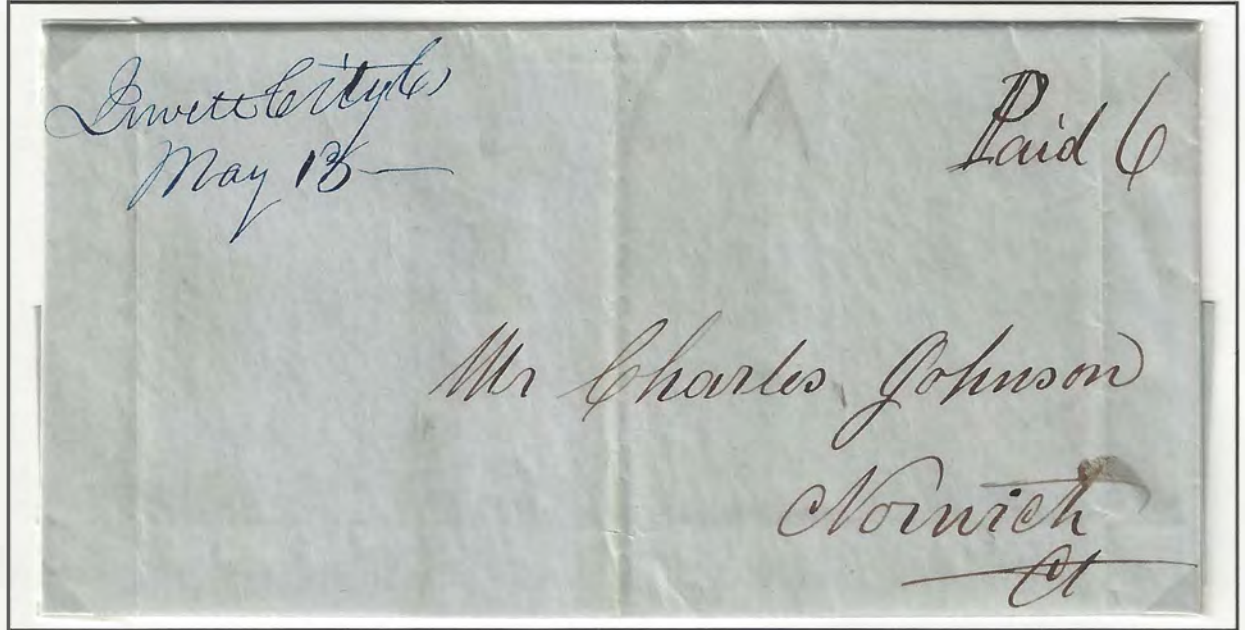 Jewett City Ct
May 13
Paid 6
Mr Charles Johnson
Norwich
Ct